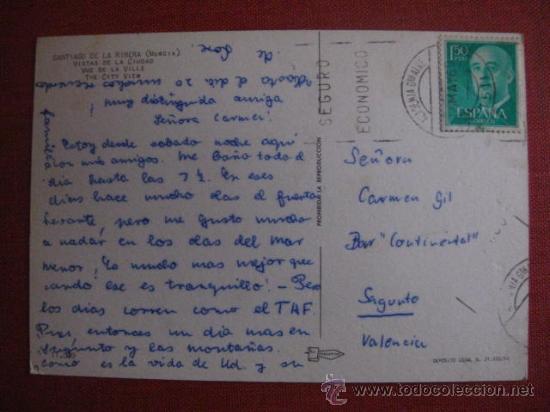 SANTIAGO DE LA RIBERA (MURCIA)
VISTAS DE LA CIUDAD
VUE DE LA VILLE
THE CITY VIEW
de
muchos recuerdos
¡Muy distinguida amiga
Señora Carmen!
Estoy desde sabado noche aquí
con mis amigos. Me baño todo el
dia hasta las 7 ½. En eses
dias hace mucho olas el fuerte
levante, pero me gusto mucho
a nadar en los olas del Mar
Menor! Yo mucho mas mejor que
cuando ese es tranquillo! – Pero
los dias corren como el TAF.
Pues entonces un dia mas en
Sagunto y las montañas.
Como es la vida de Ud. y su
familia
PROHIBIDA LA REPRODUCCIÓN
SEGURO
ECONOMICO
1,50
PTAS
Señora
Carmen Gil
Bar "Continental"
Sagunto
Valencia
DEPOSITO LEGAL B.
todocoleccion.net